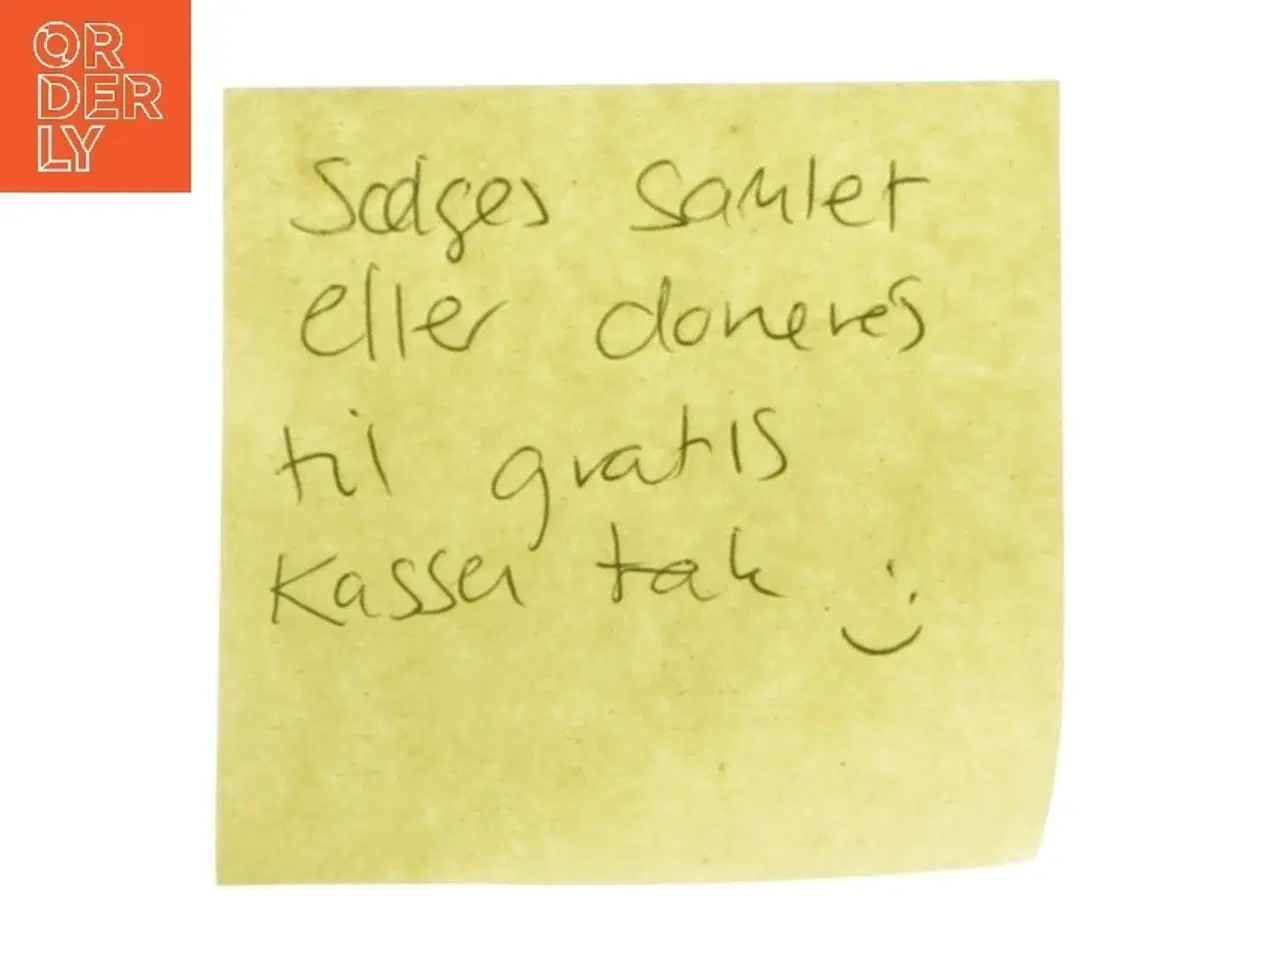 ORDERLY
Sælges samlet
eller doneres
til gratis
Kasser tak :)